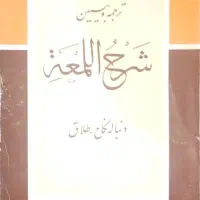 ترجمه و تبیین
شرح اللمعة
دنباله نکاح، طلاق